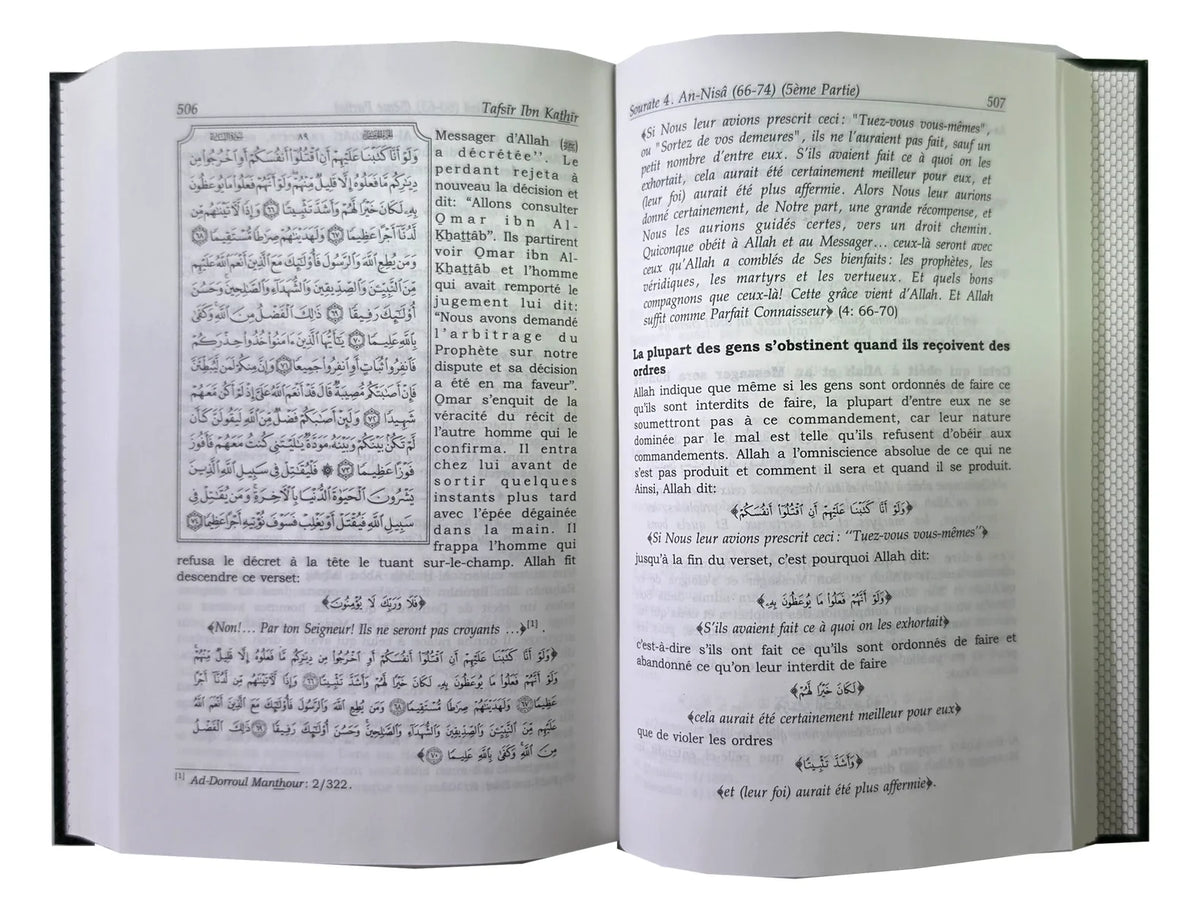 506 Tafsîr Ibn Kathîr
٨٩
وَلَوْ أَنَّا كَتَبْنَا عَلَيْهِمْ أَنِ ٱقْتُلُوٓا۟ أَنفُسَكُمْ أَوِ ٱخْرُجُوا۟ مِن
دِيَـٰرِكُم مَّا فَعَلُوهُ إِلَّا قَلِيلٌ مِّنْهُمْ وَلَوْ أَنَّهُمْ فَعَلُوا۟ مَا يُوعَظُونَ
بِهِۦ لَكَانَ خَيْرًا لَّهُمْ وَأَشَدَّ تَثْبِيتًا ٦٦ وَإِذًا لَّـَٔاتَيْنَـٰهُم مِّن
لَّدُنَّآ أَجْرًا عَظِيمًا ٦٧ وَلَهَدَيْنَـٰهُمْ صِرَٰطًا مُّسْتَقِيمًا ٦٨
وَمَن يُطِعِ ٱللَّهَ وَٱلرَّسُولَ فَأُو۟لَـٰٓئِكَ مَعَ ٱلَّذِينَ أَنْعَمَ ٱللَّهُ عَلَيْهِم
مِّنَ ٱلنَّبِيِّـۧنَ وَٱلصِّدِّيقِينَ وَٱلشُّهَدَآءِ وَٱلصَّـٰلِحِينَ وَحَسُنَ
أُو۟لَـٰٓئِكَ رَفِيقًا ٦٩ ذَٰلِكَ ٱلْفَضْلُ مِنَ ٱللَّهِ وَكَفَىٰ
بِٱللَّهِ عَلِيمًا ٧٠ يَـٰٓأَيُّهَا ٱلَّذِينَ ءَامَنُوا۟ خُذُوا۟ حِذْرَكُمْ
فَٱنفِرُوا۟ ثُبَاتٍ أَوِ ٱنفِرُوا۟ جَمِيعًا ٧١ وَإِنَّ مِنكُمْ لَمَن لَّيُبَطِّئَنَّ
فَإِنْ أَصَـٰبَتْكُم مُّصِيبَةٌ قَالَ قَدْ أَنْعَمَ ٱللَّهُ عَلَىَّ إِذْ لَمْ أَكُن مَّعَهُمْ
شَهِيدًا ٧٢ وَلَئِنْ أَصَـٰبَكُمْ فَضْلٌ مِّنَ ٱللَّهِ لَيَقُولَنَّ كَأَن
لَّمْ تَكُنۢ بَيْنَكُمْ وَبَيْنَهُۥ مَوَدَّةٌ يَـٰلَيْتَنِى كُنتُ مَعَهُمْ فَأَفُوزَ
فَوْزًا عَظِيمًا ٧٣ ۞ فَلْيُقَـٰتِلْ فِى سَبِيلِ ٱللَّهِ ٱلَّذِينَ
يَشْرُونَ ٱلْحَيَوٰةَ ٱلدُّنْيَا بِٱلْـَٔاخِرَةِ وَمَن يُقَـٰتِلْ فِى
سَبِيلِ ٱللَّهِ فَيُقْتَلْ أَوْ يَغْلِبْ فَسَوْفَ نُؤْتِيهِ أَجْرًا عَظِيمًا ٧٤
Messager d'Allah (ﷺ)
a décrétée''. Le
perdant rejeta à
nouveau la décision et
dit: “Allons consulter
Omar ibn Al-
Khattâb”. Ils partirent
voir Omar ibn Al-
Khattâb et l'homme
qui avait remporté le
jugement lui dit:
“Nous avons demandé
l'arbitrage du
Prophète sur notre
dispute et sa décision
a été en ma faveur”.
Omar s'enquit de la
véracité du récit de
l'autre homme qui le
confirma. Il entra
chez lui avant de
sortir quelques
instants plus tard
avec l'épée dégainée
dans la main. Il
frappa l'homme qui
refusa le décret à la tête le tuant sur-le-champ. Allah fit
descendre ce verset:
﴿فَلَا وَرَبِّكَ لَا يُؤْمِنُونَ﴾
﴾Non!... Par ton Seigneur! Ils ne seront pas croyants ...﴿[1] .
﴿وَلَوْ أَنَّا كَتَبْنَا عَلَيْهِمْ أَنِ ٱقْتُلُوٓا۟ أَنفُسَكُمْ أَوِ ٱخْرُجُوا۟ مِن دِيَـٰرِكُم مَّا فَعَلُوهُ إِلَّا قَلِيلٌ مِّنْهُمْ
وَلَوْ أَنَّهُمْ فَعَلُوا۟ مَا يُوعَظُونَ بِهِۦ لَكَانَ خَيْرًا لَّهُمْ وَأَشَدَّ تَثْبِيتًا ٦٦ وَإِذًا لَّـَٔاتَيْنَـٰهُم مِّن لَّدُنَّآ أَجْرًا
عَظِيمًا ٦٧ وَلَهَدَيْنَـٰهُمْ صِرَٰطًا مُّسْتَقِيمًا ٦٨ وَمَن يُطِعِ ٱللَّهَ وَٱلرَّسُولَ فَأُو۟لَـٰٓئِكَ مَعَ ٱلَّذِينَ أَنْعَمَ ٱللَّهُ
عَلَيْهِم مِّنَ ٱلنَّبِيِّـۧنَ وَٱلصِّدِّيقِينَ وَٱلشُّهَدَآءِ وَٱلصَّـٰلِحِينَ وَحَسُنَ أُو۟لَـٰٓئِكَ رَفِيقًا ٦٩ ذَٰلِكَ ٱلْفَضْلُ
مِنَ ٱللَّهِ وَكَفَىٰ بِٱللَّهِ عَلِيمًا ٧٠﴾
[1] Ad-Dorroul Manthour: 2/322.
Sourate 4. An-Nisâ (66-74) (5ème Partie) 507
﴾Si Nous leur avions prescrit ceci: "Tuez-vous vous-mêmes",
ou "Sortez de vos demeures", ils ne l'auraient pas fait, sauf un
petit nombre d'entre eux. S'ils avaient fait ce à quoi on les
exhortait, cela aurait été certainement meilleur pour eux, et
(leur foi) aurait été plus affermie. Alors Nous leur aurions
donné certainement, de Notre part, une grande récompense, et
Nous les aurions guidés certes, vers un droit chemin.
Quiconque obéit à Allah et au Messager... ceux-là seront avec
ceux qu'Allah a comblés de Ses bienfaits: les prophètes, les
véridiques, les martyrs et les vertueux. Et quels bons
compagnons que ceux-là! Cette grâce vient d'Allah. Et Allah
suffit comme Parfait Connaisseur﴿ (4: 66-70)
La plupart des gens s'obstinent quand ils reçoivent des
ordres
Allah indique que même si les gens sont ordonnés de faire ce
qu'ils sont interdits de faire, la plupart d'entre eux ne se
soumettront pas à ce commandement, car leur nature
dominée par le mal est telle qu'ils refusent d'obéir aux
commandements. Allah a l'omniscience absolue de ce qui ne
s'est pas produit et comment il sera et quand il se produit.
Ainsi, Allah dit:
﴿وَلَوْ أَنَّا كَتَبْنَا عَلَيْهِمْ أَنِ ٱقْتُلُوٓا۟ أَنفُسَكُمْ﴾
﴾Si Nous leur avions prescrit ceci: ''Tuez-vous vous-mêmes''﴿
jusqu'à la fin du verset, c'est pourquoi Allah dit:
﴿وَلَوْ أَنَّهُمْ فَعَلُوا۟ مَا يُوعَظُونَ بِهِۦ﴾
﴾S'ils avaient fait ce à quoi on les exhortait﴿
c'est-à-dire s'ils ont fait ce qu'ils sont ordonnés de faire et
abandonné ce qu'on leur interdit de faire
﴿لَكَانَ خَيْرًا لَّهُمْ﴾
﴾cela aurait été certainement meilleur pour eux﴿
que de violer les ordres
﴿وَأَشَدَّ تَثْبِيتًا﴾
﴾et (leur foi) aurait été plus affermie﴿.